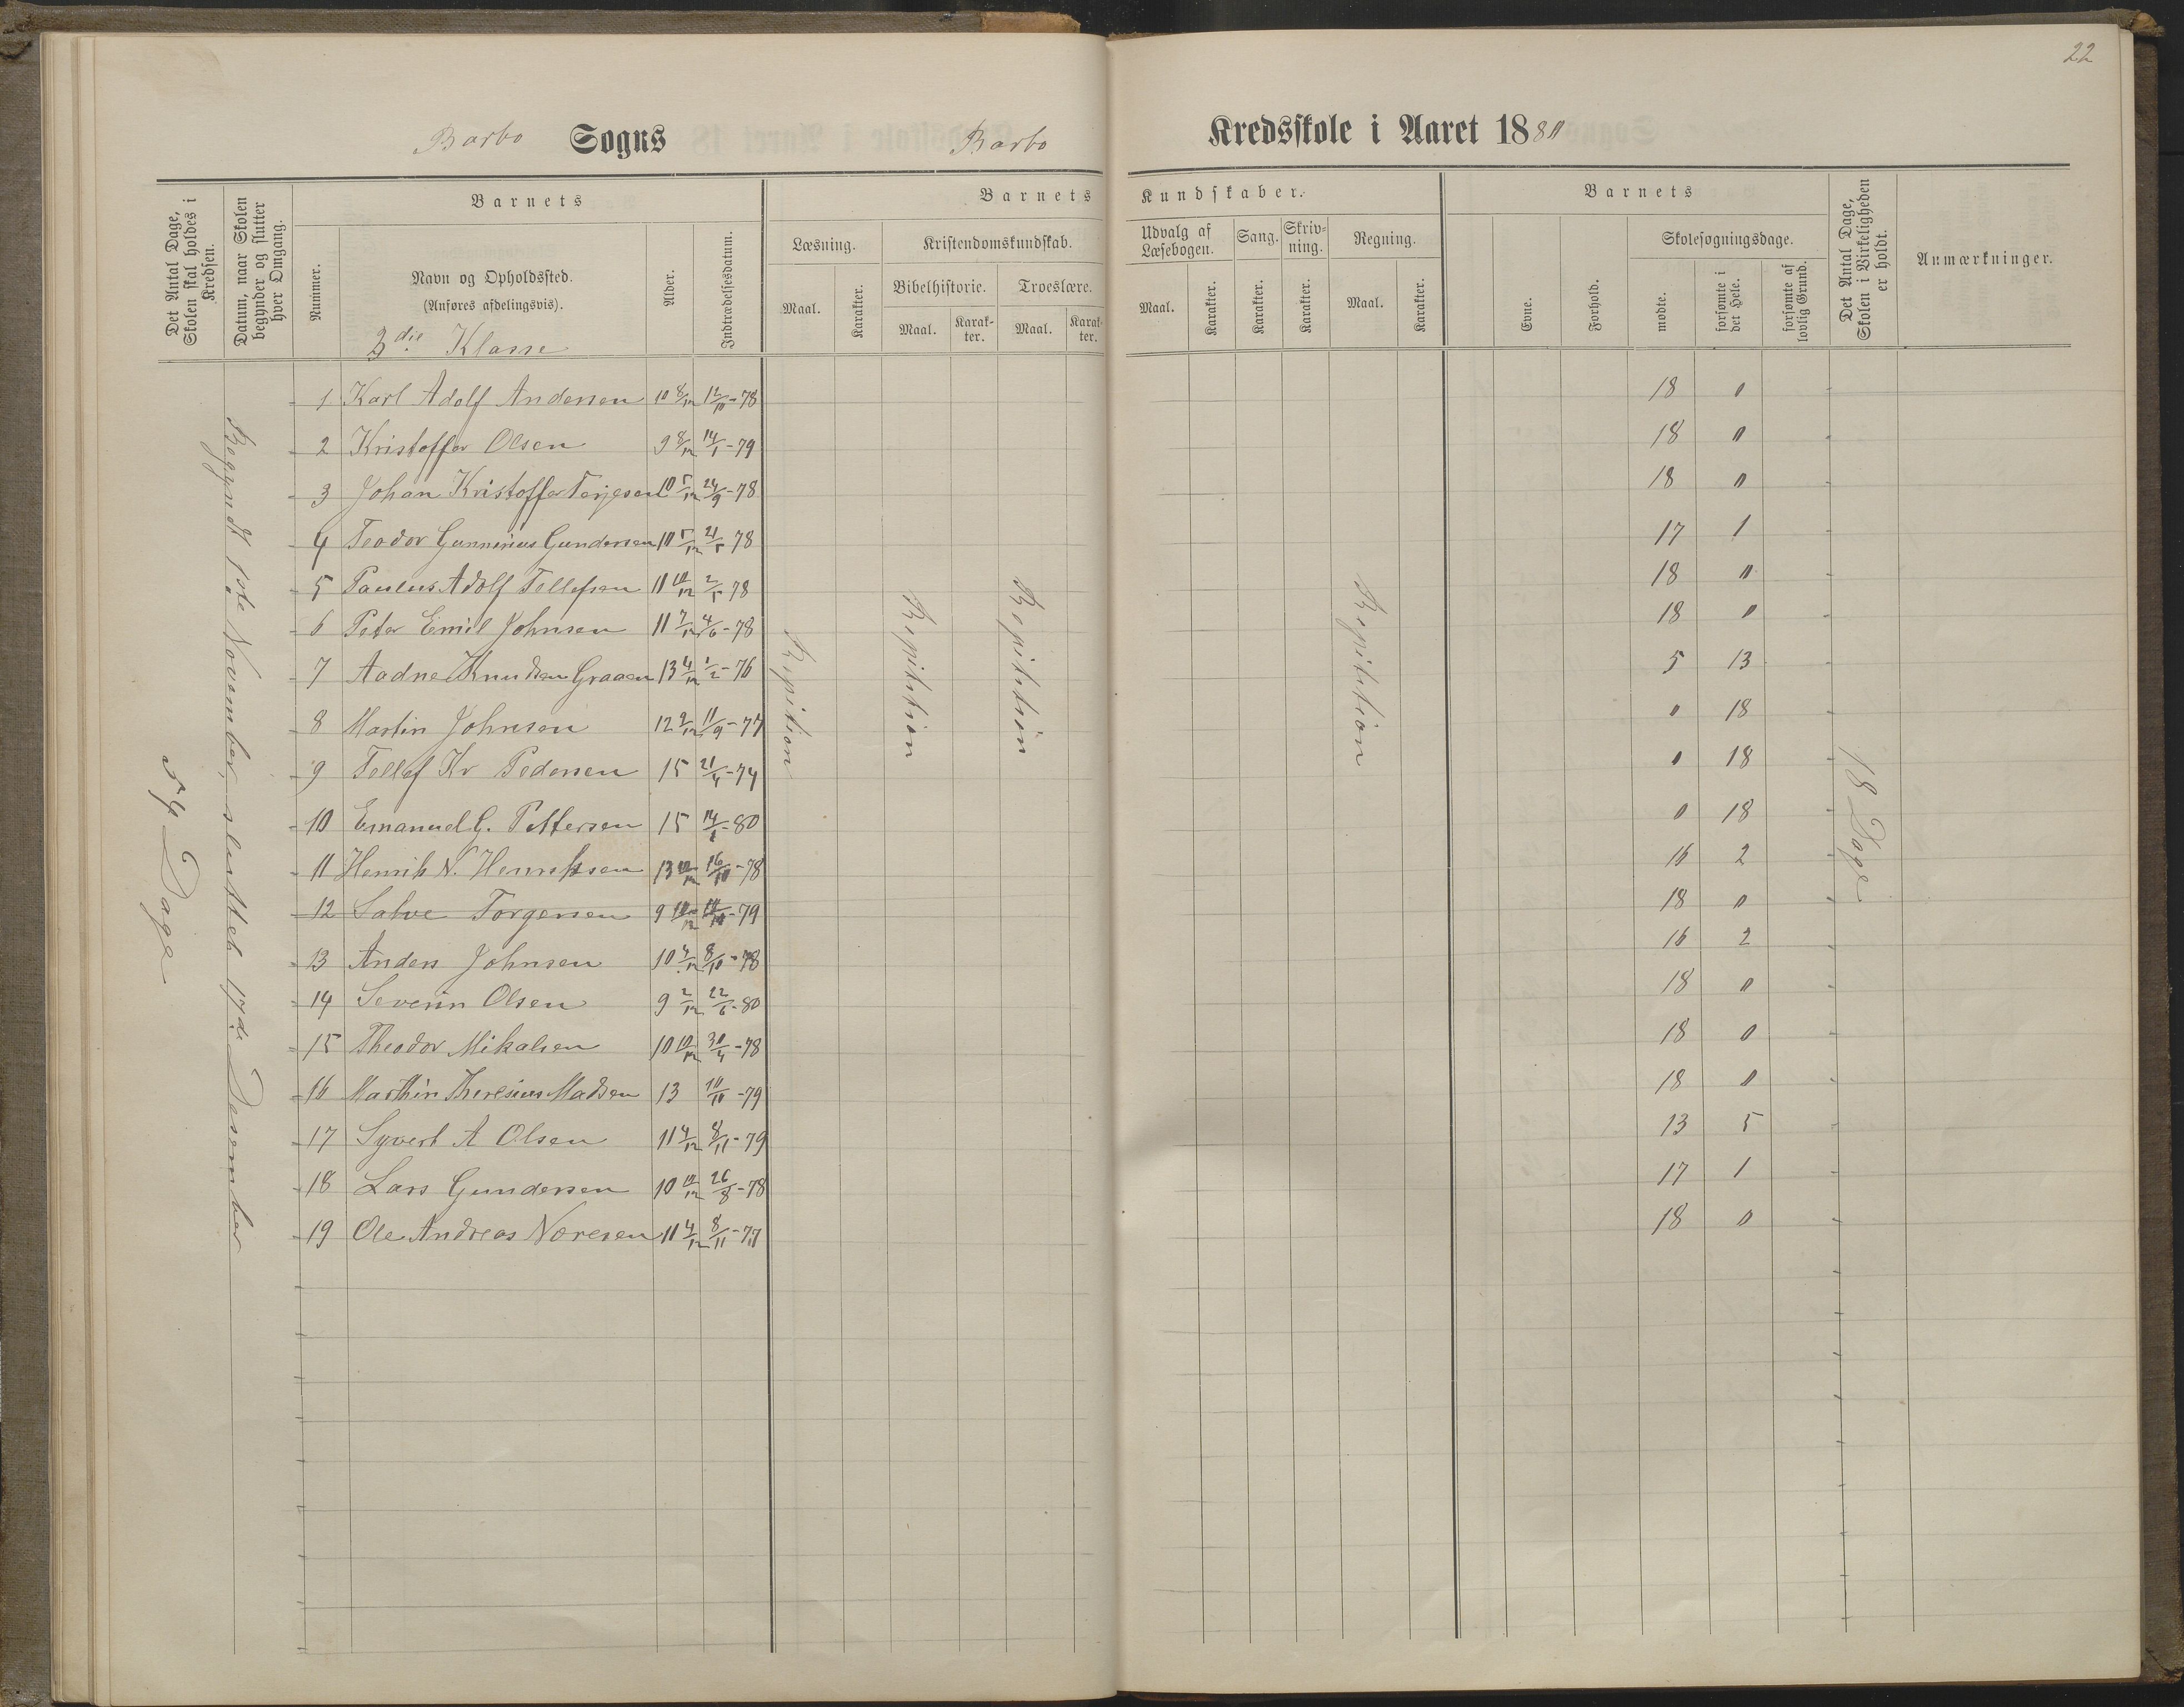 22
Barbo Sogns Barbo Kredsskole i Aaret 1880
Det Antal Dage, Skolen skal holdes i Kredsen.
Datum, naar Skolen begynder og slutter hver Omgang.
Barnets
Nummer.
Navn og Opholdssted.
(Anføres afdelingsvis).
3die Klasse
Alder.
Indtrædelsesdatum.
Barnets Kundskaber.
Læsning.
Maal.
Karakter.
Kristendomskundskab.
Bibelhistorie.
Maal.
Karakter.
Troeslære.
Maal.
Karakter.
Udvalg af Læsebogen.
Maal.
Karakter.
Sang.
Karakter.
Skrivning.
Karakter.
Regning.
Maal.
Karakter.
Barnets
Evne.
Forhold.
Skolesøgningsdage.
mødte.
forsømte i det Hele.
forsømte af lovlig Grund.
Det Antal Dage, Skolen i Virkeligheden er holdt.
Anmærkninger.
54 Dage
Begyndt 1ste November, sluttet 17de Desember
1 Karl Adolf Andersen 10 8/12 12/10-78 18 0
2 Kristoffer Olsen 9 8/12 14/1-79 18 0
3 Johan Kristoffer Terjesen 10 5/12 24/9-78 18 0
4 Teodor Gunnerius Gundersen 10 5/12 21/5 78 17 1
5 Paulus Adolf Tellefsen 11 10/12 2/5-78 18 0
6 Peter Emil Johnsen 11 7/12 4/6-78 18 0
7 Aadne Knudsen Graaen 13 4/12 1/2-76 5 13
8 Martin Johnsen 12 9/12 11/9-77 0 18
9 Tellef Kr Pedersen 15 21/4-74 0 18
10 Emanuel G. Pettersen 15 14/1-80 0 18
11 Henrik N. Henriksen 13 10/12 16/10-78 16 2
12 Salve Torgersen 9 -79 18 0
13 Anders Johnsen 10 4/12 8/10-78 16 2
14 Severin Olsen 9 2/12 22/6-80 18 0
15 Theodor Mikalsen 10 10/12 30/4-78 18 0
16 Marthin Theresius Madsen 13 10/10-79 18 0
17 Syvert A Olsen 11 4/12 8/11-79 13 5
18 Lars Gundersen 10 10/12 26/8-78 17 1
19 Ole Andreas Noresen 11 4/12 8/11-77 18 0
Repition
Repitition
Repitition
Repitition
18 Dage